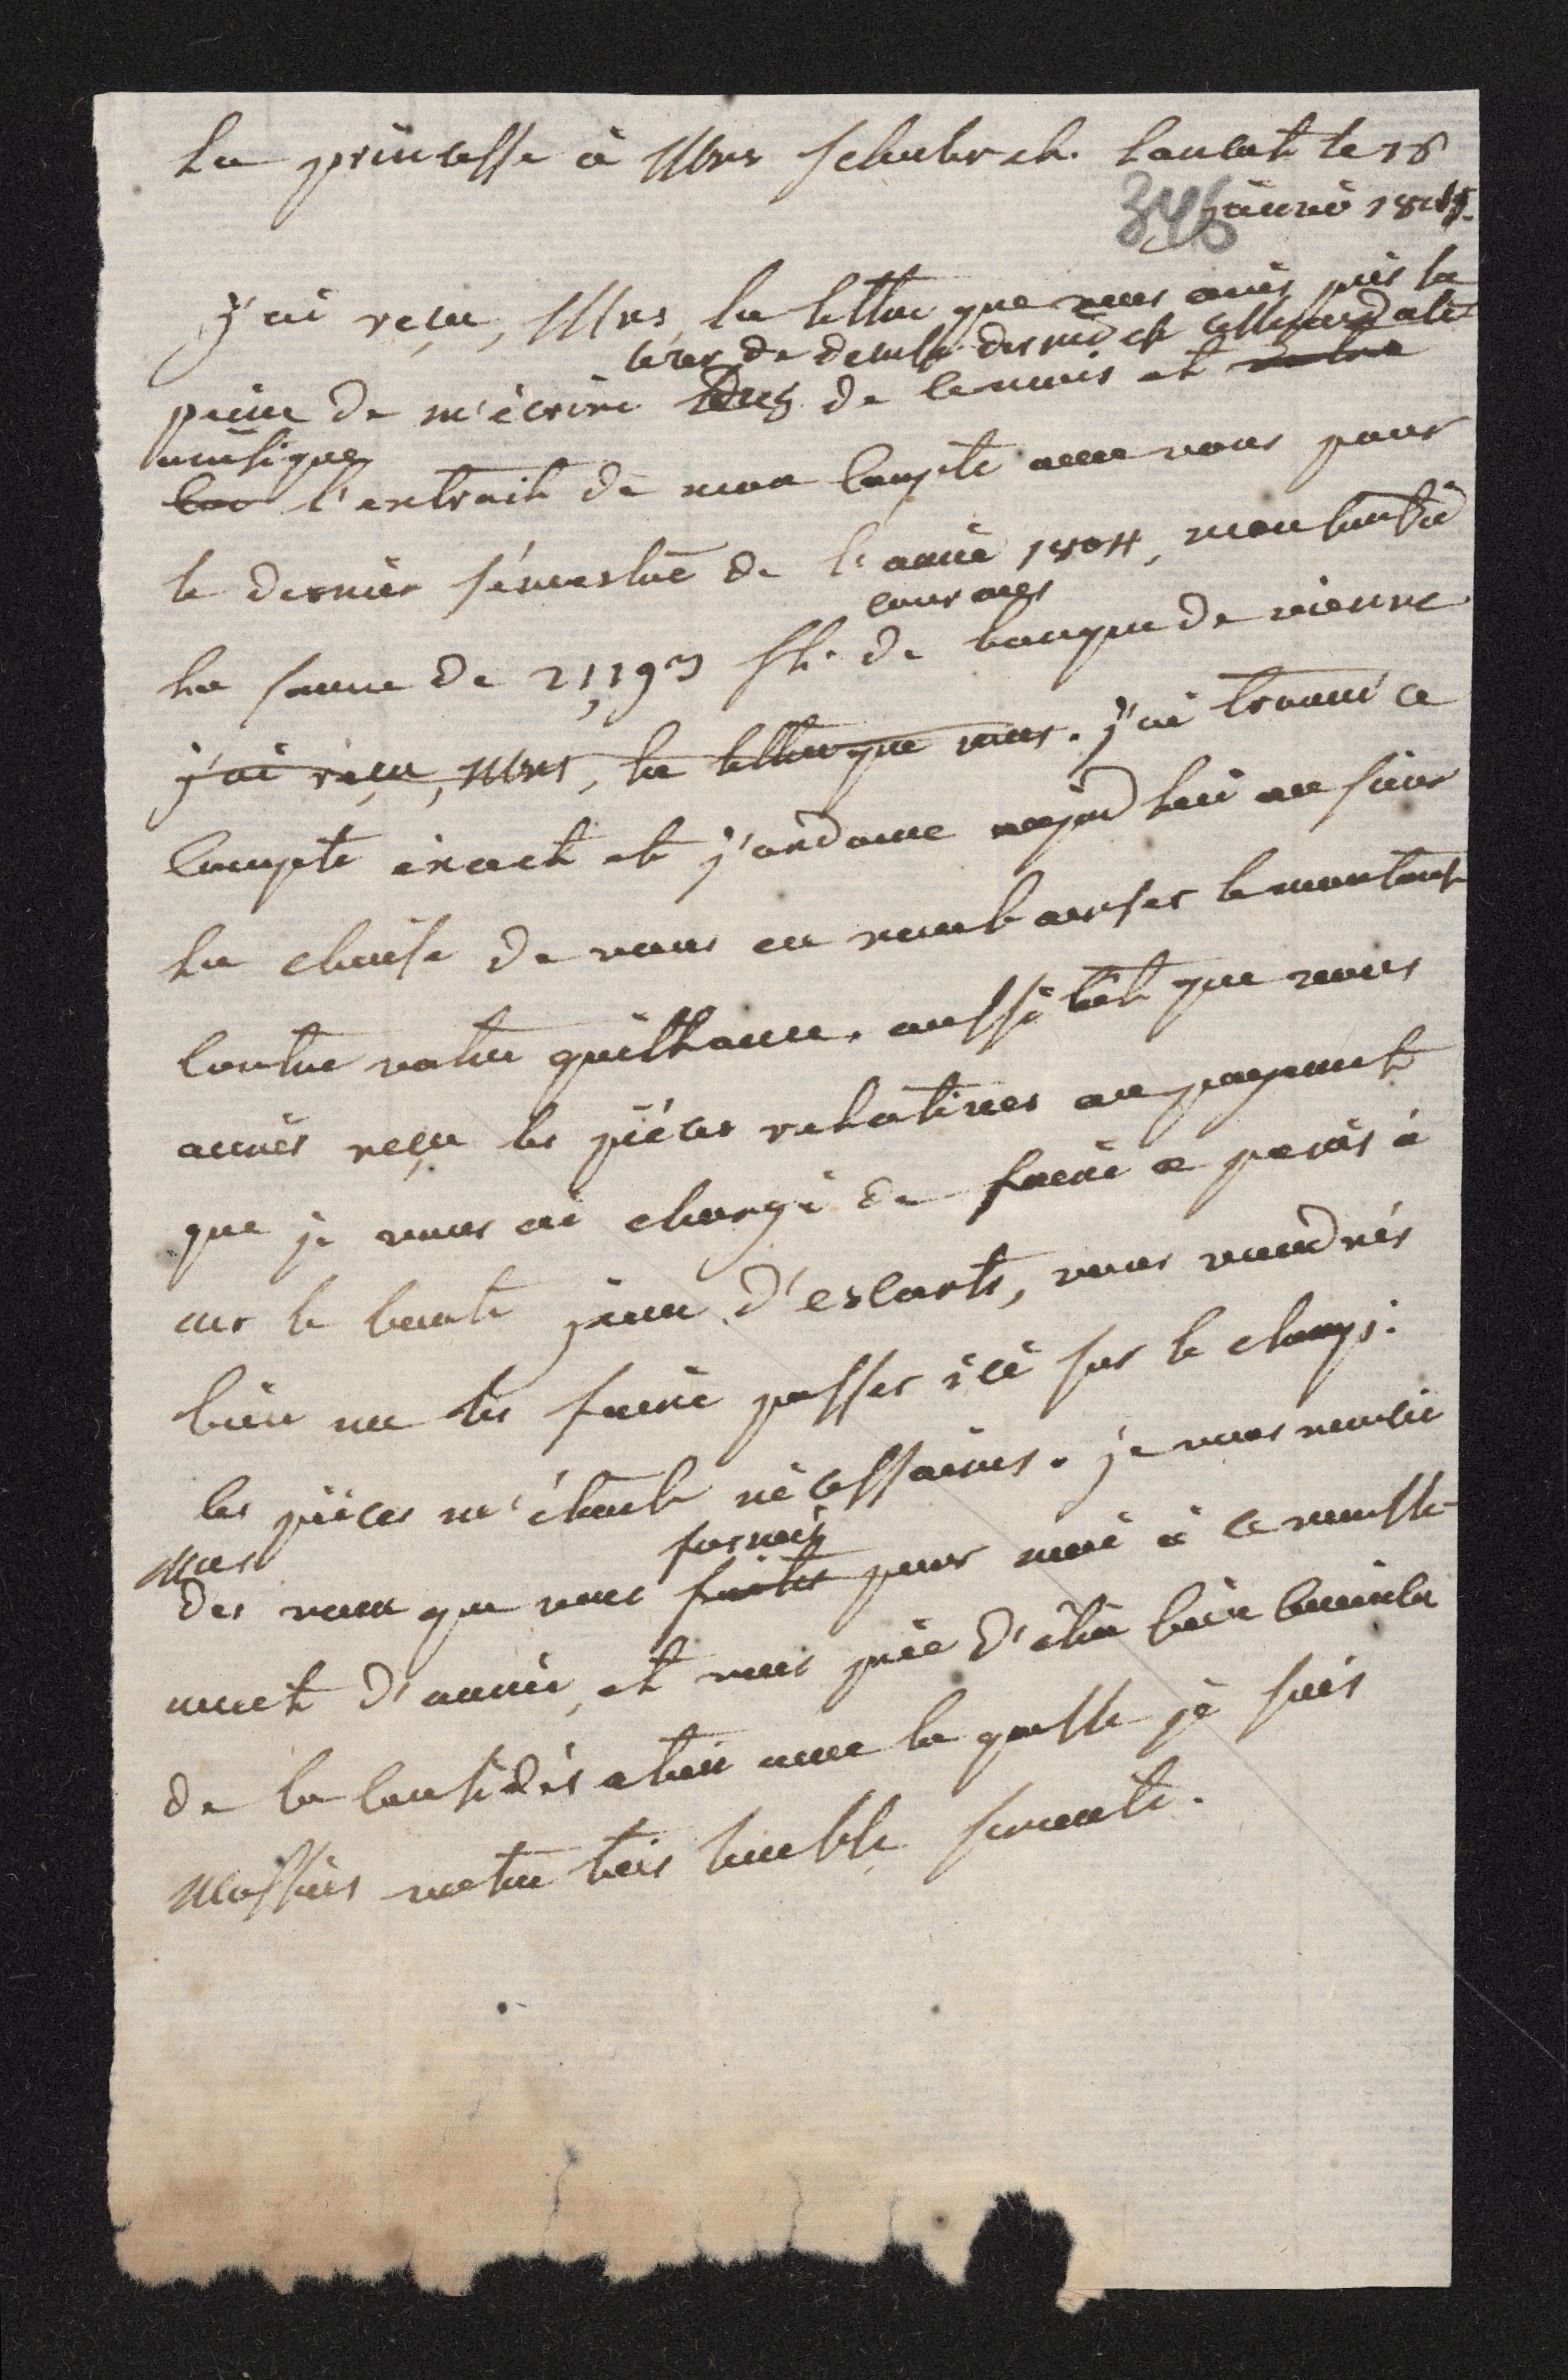 La princesse à Mrs schuler ch. Lancut le 18
346
janvié 1805.
j'ai reçu, Mrs, la lettre que vous avés pris la
le 1er de de ce mois et
peine de m'écrire de ce mois et
musique
l'extrait de mon Compte avec vous pour
le dernier sémestre de l'anné 1804, montant à
courants
La some de 21,193 fl. de banque de vienne
j'ai reçu, Mrs, la lettre que vous. j'ai trouvé ce
Compte éxact et j'ordonne aujourd hui au sieur
La chaise de vous en rembourser le montant
Contre votre quittance. aussi tôt que vous
aurés reçu les piéces relatives au payement
que je vous ai chargé de faire a paris à
mr le Comte jean d'esCarts, vous voudrés
bien me les faire passer ici sur le champ.
les piéces m'étant nécessaires. je vous remercie
Mrs
formés
des voeux que vous faites pour moi à ce renouvelle
ment d'année, et vous prie d'être bien convaincu
de la Considération avec la quelle je suis
Messieurs votre très humble servante.